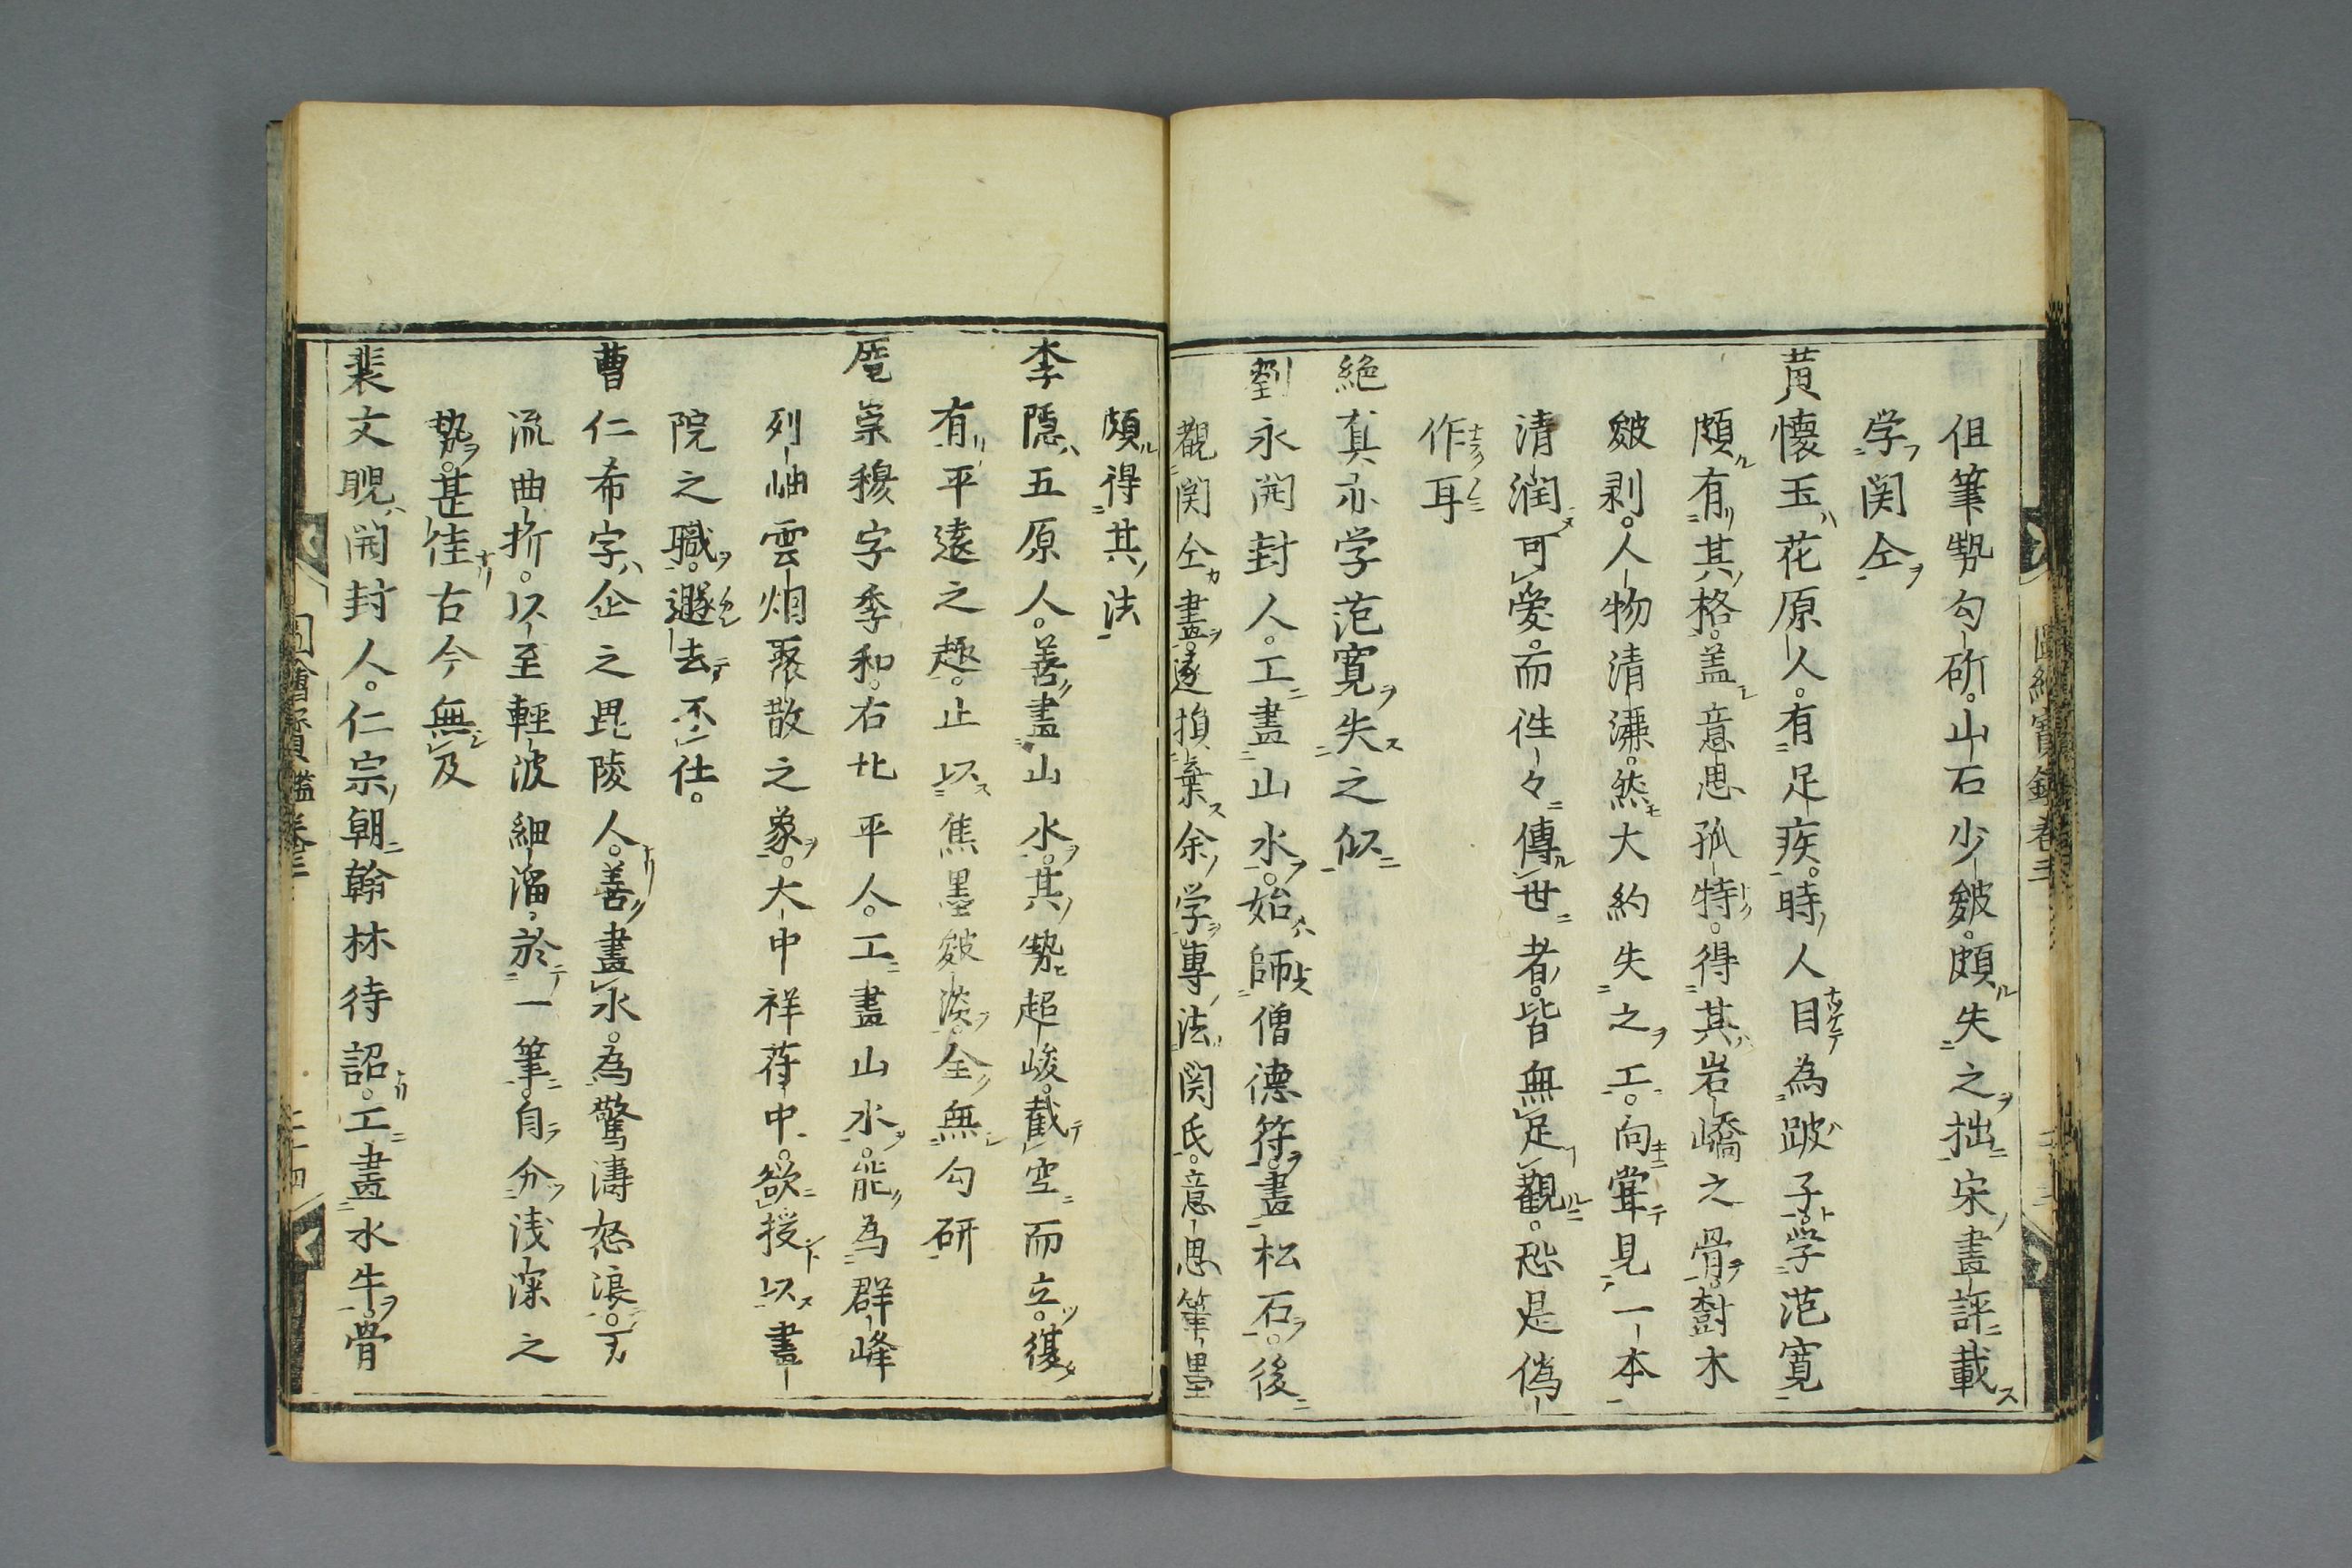 但筆勢勾斫。山石少皴。頗失之拙宋畫評載
学関仝
黄懐玉花原人。有足疾。時人目為跛子。学范寛
頗有其格。盖意思孤特。得其岩嶠之骨。樹木
皴剥。人物清潇。然大約失之工。向甞見一本
清润可愛。而徃々傳世者。皆無足觀。恐是偽
作耳
絶真亦学范寛失之似
劉永開封人。工畫山水。始師僧德符。畫松石。後
觀関仝畫。遂損棄余学專法関氏。意思筆墨
頗得其法
李隠五原人。善畫山水。其勢超峻。截空而立。復
有平遠之趣。止以焦墨皴淡。全無勾研
厖崇穆字季和。右北平人。工畫山水。能為群峰
列岫雲烟聚散之象。大中祥苻中。欲授以畫
院之職。遯去不仕。
曹仁希字企之毘陵人。善畫水。為驚濤怒浪。万
流曲折。以至輕波細溜。於一筆。自分浅深之
勢。甚佳古今無及
裴文睍開封人。仁宗朝翰林待詔。工畫水牛。骨
圖繪寶鑑卷三